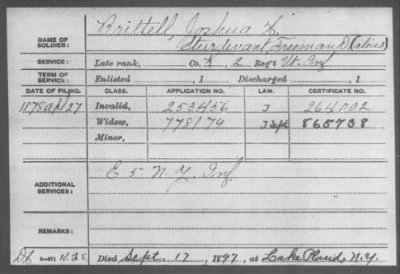 NAME OF SOLDIER: Brittell, Joshua K.
Sturdevant Freeman D (alias)
SERVICE: Late rank, Co. K, 2 Reg't Vt. Inf
TERM OF SERVICE: Enlisted , 1 Discharged , 1
DATE OF FILING. CLASS. APPLICATION NO. LAW. CERTIFICATE NO.
1878 Apl 27 Invalid, 253456 J 264002
Widow, 778174 565738
Minor,
ADDITIONAL SERVICES: E 5" N.Y. Inf.
REMARKS:
Died Sept. 17, 1897, at Lake Placid, N.Y.